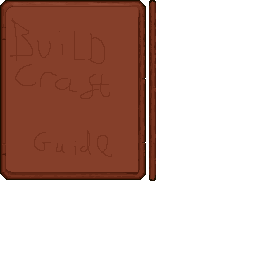 BuiLD
Craft
Guide